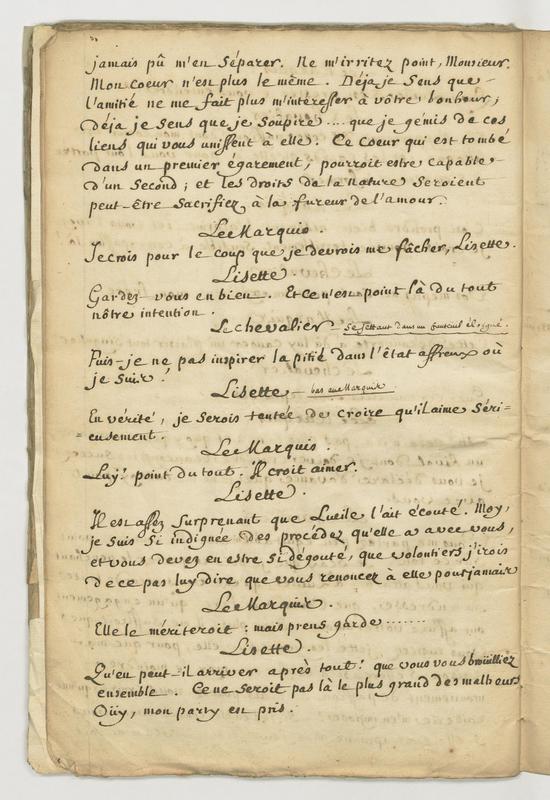 jamais pû m'en séparer. Ne m'irritez point, Monsieur.
Mon coeur n'est plus le même. Déja je sens que
l'amitié ne me fait plus m'intéresser à vôtre bonheur;
déja je sens que je soûpire .... que je gémis de ces
liens qui vous unissent à elle. Ce coeur qui est tombé
dans un premier égarement, pourroit estre capable
d'un second; et les droits de la nature seroient
peut-être sacrifiez à la fureur de l'amour.
Le Marquis.
Je crois pour le coup que je devrois me fâcher, Lisette.
Lisette.
Gardez-vous en bien. Et ce n'est point là du tout
nôtre intention.
Le chevalier se jettant dans un fauteuil éloigné.
Puis-je ne pas inspirer la pitié dans l'êtat affreux où
je suis!
Lisette bas au Marquis
En vérité, je serois tentée de croire qu'il aime séri=
=eusement.
Le Marquis.
Luy! point du tout. Il croit aimer.
Lisette.
Il est assez surprenant que Lucile l'ait écouté. Moy,
je suis si indignée des procédez qu'elle a avec vous,
et vous devez en estre si dégouté, que volontiers j'irois
de ce pas luy dire que vous renoncez à elle pour jamais
Le Marquis.
Elle le mériteroit: mais prens garde .......
Lisette.
Qu'en peut-il arriver après tout! que vous vous broüilliez
ensemble. Ce ne seroit pas là le plus grand des malheurs
Oüy, mon party en pris.